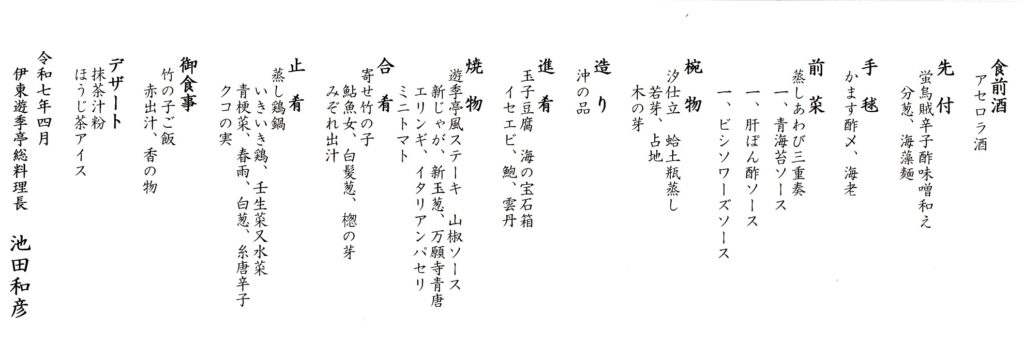 食前酒
アセロラ酒
先付
蛍烏賊辛子酢味噌和え
分葱、海藻麺
手毬
かます酢〆、海老
前菜
蒸しあわび三重奏
一、青海苔ソース
一、肝ぽん酢ソース
一、ビシソワーズソース
椀物
汐仕立 蛤土瓶蒸し
若芽、占地
木の芽
造り
沖の品
進肴
玉子豆腐 海の宝石箱
イセエビ、鮑、雲丹
焼物
遊季亭風ステーキ 山椒ソース
新じゃが、新玉葱、万願寺青唐
エリンギ、イタリアンパセリ
ミニトマト
合肴
寄せ竹の子
鮎魚女、白髪葱、楤の芽
みぞれ出汁
止肴
蒸し鶏鍋
いきいき鶏、壬生菜又水菜
青梗菜、春雨、白葱、糸唐辛子
クコの実
御食事
竹の子ご飯
赤出汁、香の物
デザート
抹茶汁粉
ほうじ茶アイス
令和七年四月
伊東遊季亭総料理長 池田和彦